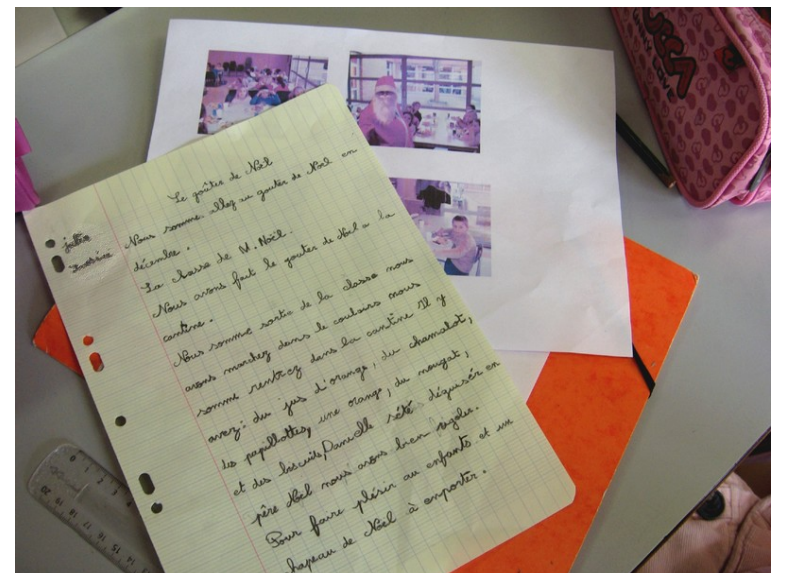 Le goûter de Noël
Nous somme allez au goûter de Noël en
décembre.
La classe de M. Noël.
Nous avons fait le gouter de Noël a la
cantine.
Nous somme sortie de la classe nous
avons marchez dans le couloirs nous
somme rentrez dans la cantine Il y
avez: du jus d'orange, du chamalot,
des papillottes, une orange, du nougat,
et des biscuits, Danielle sété déguisér en
père Noël nous avons bien rigoler.
Pour faire plésir au enfants et un
hapeau de Noël à emporter.